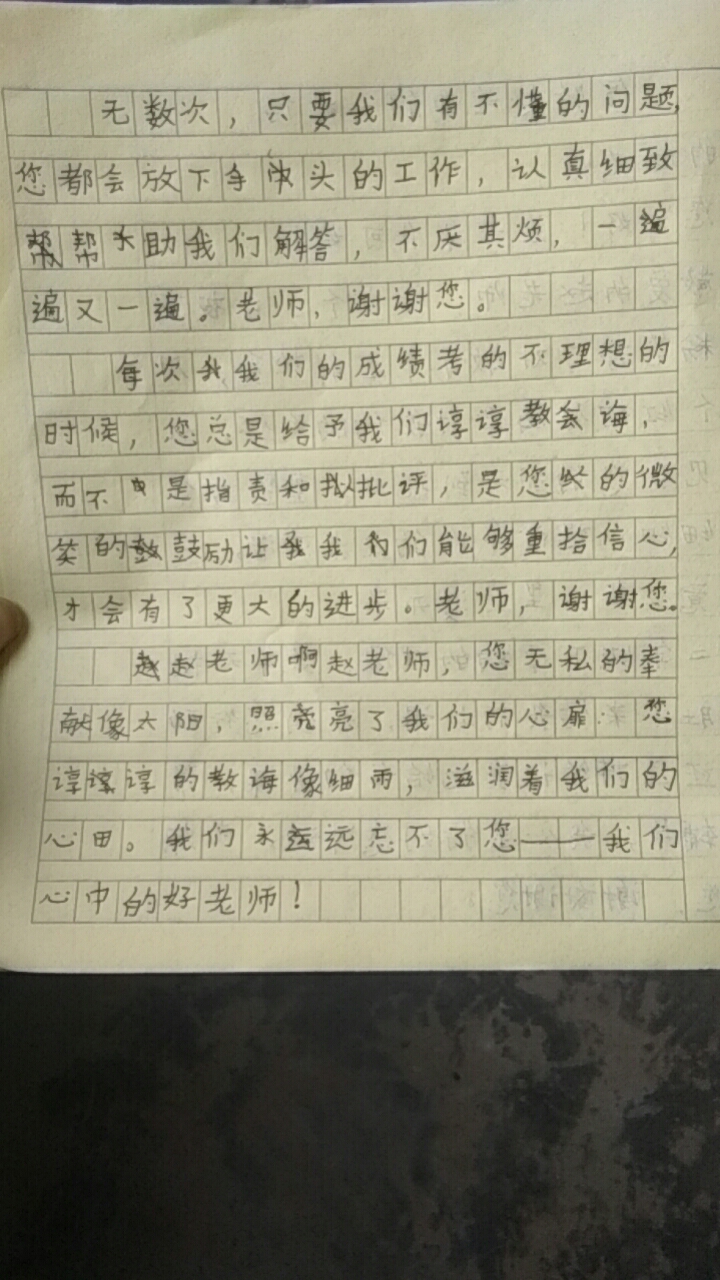 无数次，只要我们有不懂的问题，
您都会放下手头的工作，认真细致
帮助我们解答，不厌其烦，一遍
遍又一遍。老师，谢谢您。
每次我们的成绩考的不理想的
时候，您总是给予我们谆谆教诲，
而不是指责和批评，是您的微
笑的鼓励让我们能够重拾信心，
才会有了更大的进步。老师，谢谢您。
赵老师啊赵老师，您无私的奉
献像太阳，照亮了我们的心扉：您
谆谆的教诲像细雨，滋润着我们的
心田。我们永远忘不了您——我们
心中的好老师！